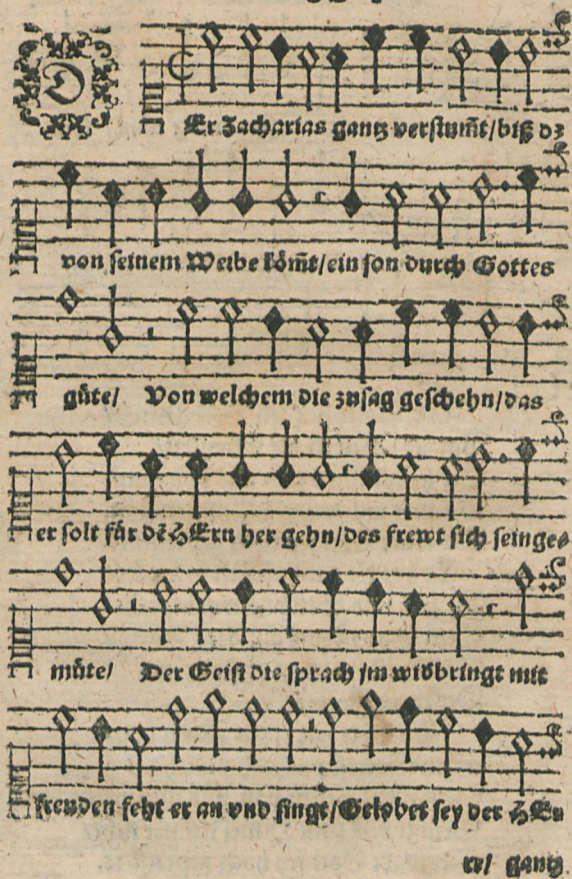 DEr Zacharias gantz verstum̃t/biß dz
von seinem Weibe köm̃t/ein son durch Gottes
güte/ Von welchem die zusag geschehn/das
er solt für dē HErn her gehn/des frewt sich sein ge-
müte/ Der Geist die sprach jm widbringt mit
freuden feht er an vnd singt/Gelobet sey der HEr
rr/ gantz